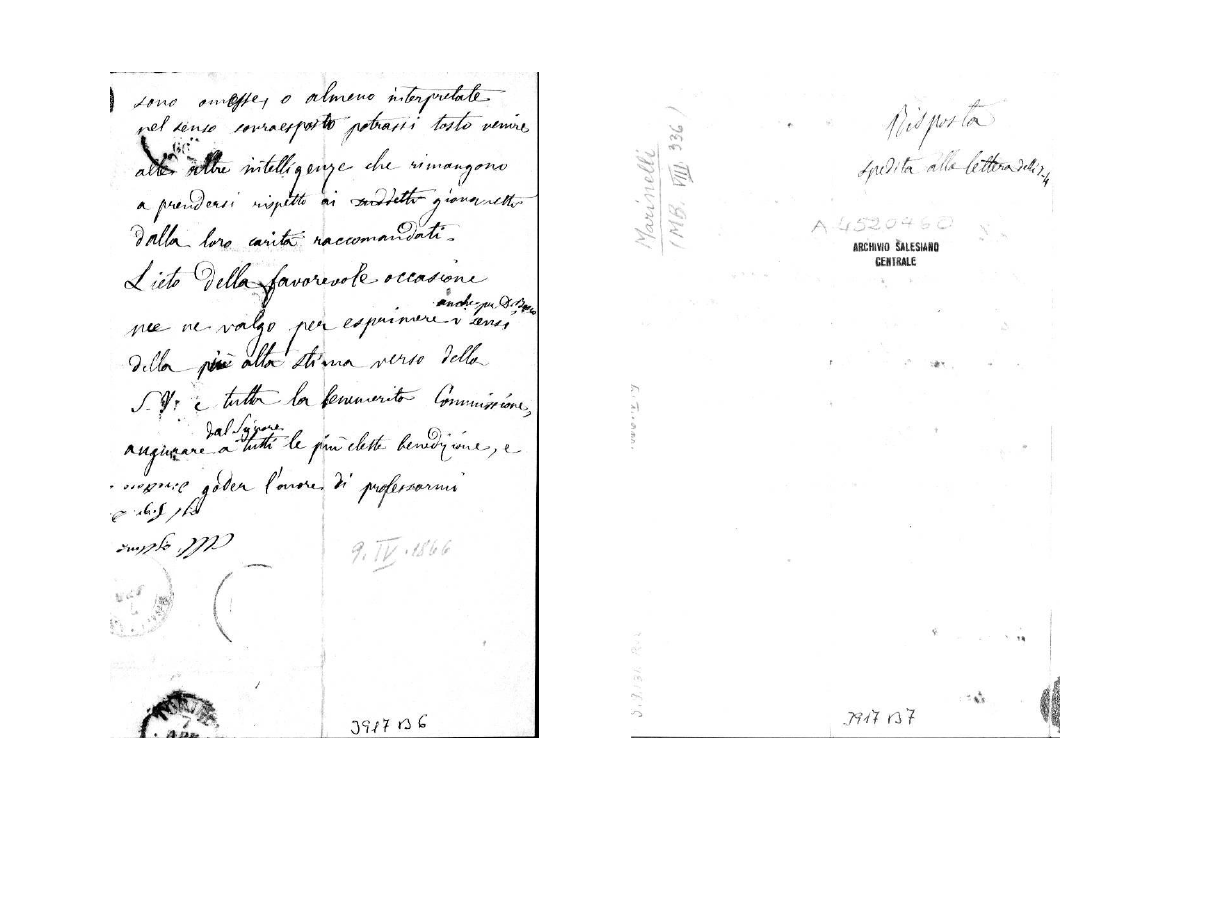 sono omesse, o almeno interpretate
nel senso sovraesposto potrassi tosto venire
alle altre intelligenze che rimangono
a prendersi rispetto ai suddetti giovanetti
dalla loro carità raccomandati.
Lieto della favorevole occasione
anche per D. Bosco
me ne valgo per esprimere i sensi
della più alta stima verso della
S. V. e tutta la benemerita Commissione,
dal Signore
augurare a tutti le più elette benedizione, e
goder l'onore di professarmi
9. IV. 1866
TORINO
7
3917 B 6
Marinelli
(MB. VIII. 336)
Risposta
spedita alla lettera delli 7-4
A 4520460
ARCHIVIO SALESIANO
CENTRALE
3917 B 7